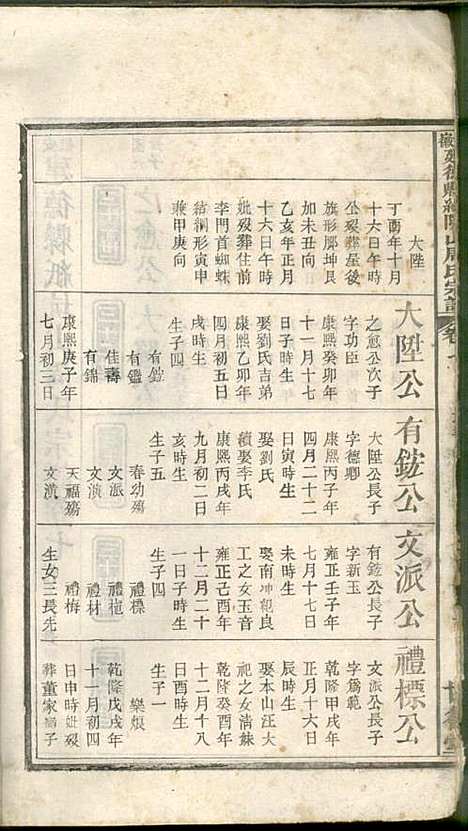 大陞
丁酉年十月
十六日午時
公殁葬屋後
旗形那坤艮
加未丑向
乙亥年正月
十六日午時
妣殁葬住前
李門首蜘蛛
結網形寅申
兼甲庚向
大陞公
之愈公次子
字功臣
康熙癸卯年
十一月十七
日子時生
娶劉氏吉弟
康熙乙卯年
四月初五日
戌時生
生子四
有鎡
有鑑
佳壽
有錦
康熙庚子年
七月初三日
有鎡公
大陞公長子
字德卿
康熙丙子年
四月二十二
日寅時生
娶劉氏
續娶李氏
康熙丙戌年
九月初二日
亥時生
生子五
春幼殤
文派
文演
天福殤
文濱
文派公
有鎡公長子
字新玉
雍正壬子年
七月十七日
未時生
娶南冲觀良
工之女玉音
雍正己酉年
十二月二十
一日子時生
生子四
禮標
禮植
禮材
禮梅
生女三長先
禮標公
文派公長子
字為範
乾隆甲戌年
正月十六日
辰時生
娶本山汪大
祀之女清妹
乾隆癸酉年
十二月十八
日酉時生
生子一
樂娘
乾隆戊戌年
十一月初四
日申時妣殁
葬董家塝子